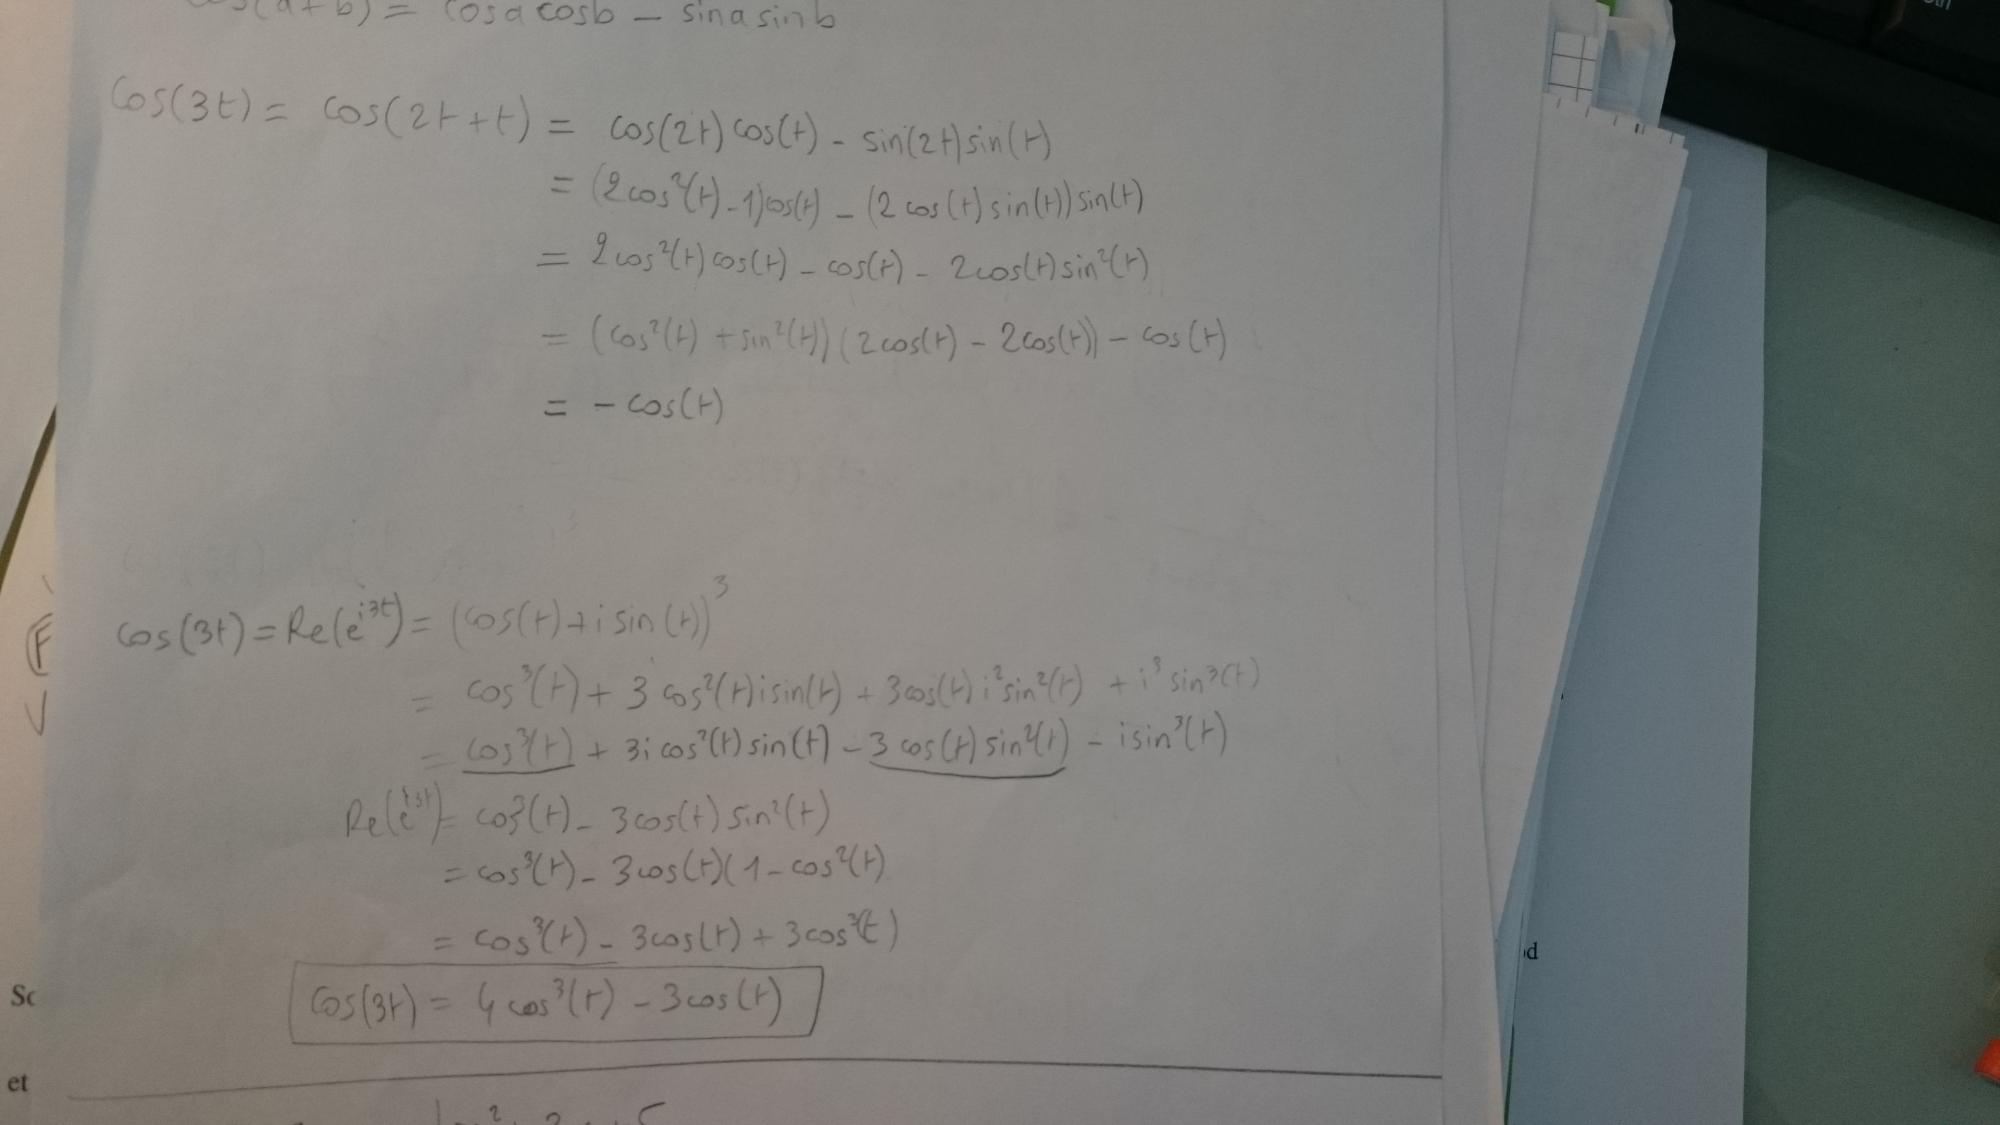 cos(a+b) = cosa cosb - sina sinb
Cos(3t) = cos(2t+t) = cos(2t) cos(t) - sin(2t) sin(t)
= (2cos²(t)-1)cos(t) - (2 cos(t) sin(t)) sin(t)
= 2cos²(t) cos(t) - cos(t) - 2cos(t) sin²(t)
= (cos²(t) + sin²(t)) (2cos(t) - 2cos(t)) - cos(t)
= - cos(t)
cos(3t) = Re(e^{i3t}) = (cos(t) + i sin(t))³
= cos³(t) + 3 cos²(t) i sin(t) + 3cos(t) i² sin²(t) + i³ sin³(t)
= cos³(t) + 3i cos²(t) sin(t) - 3 cos(t) sin²(t) - i sin³(t)
Re(e^{i3t}) = cos³(t) - 3cos(t) sin²(t)
= cos³(t) - 3cos(t)(1 - cos²(t)
= cos³(t) - 3cos(t) + 3cos³(t)
Cos(3t) = 4 cos³(t) - 3cos(t)
et